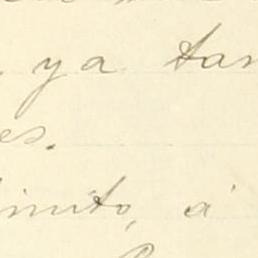 y a tan
es.
inito, á